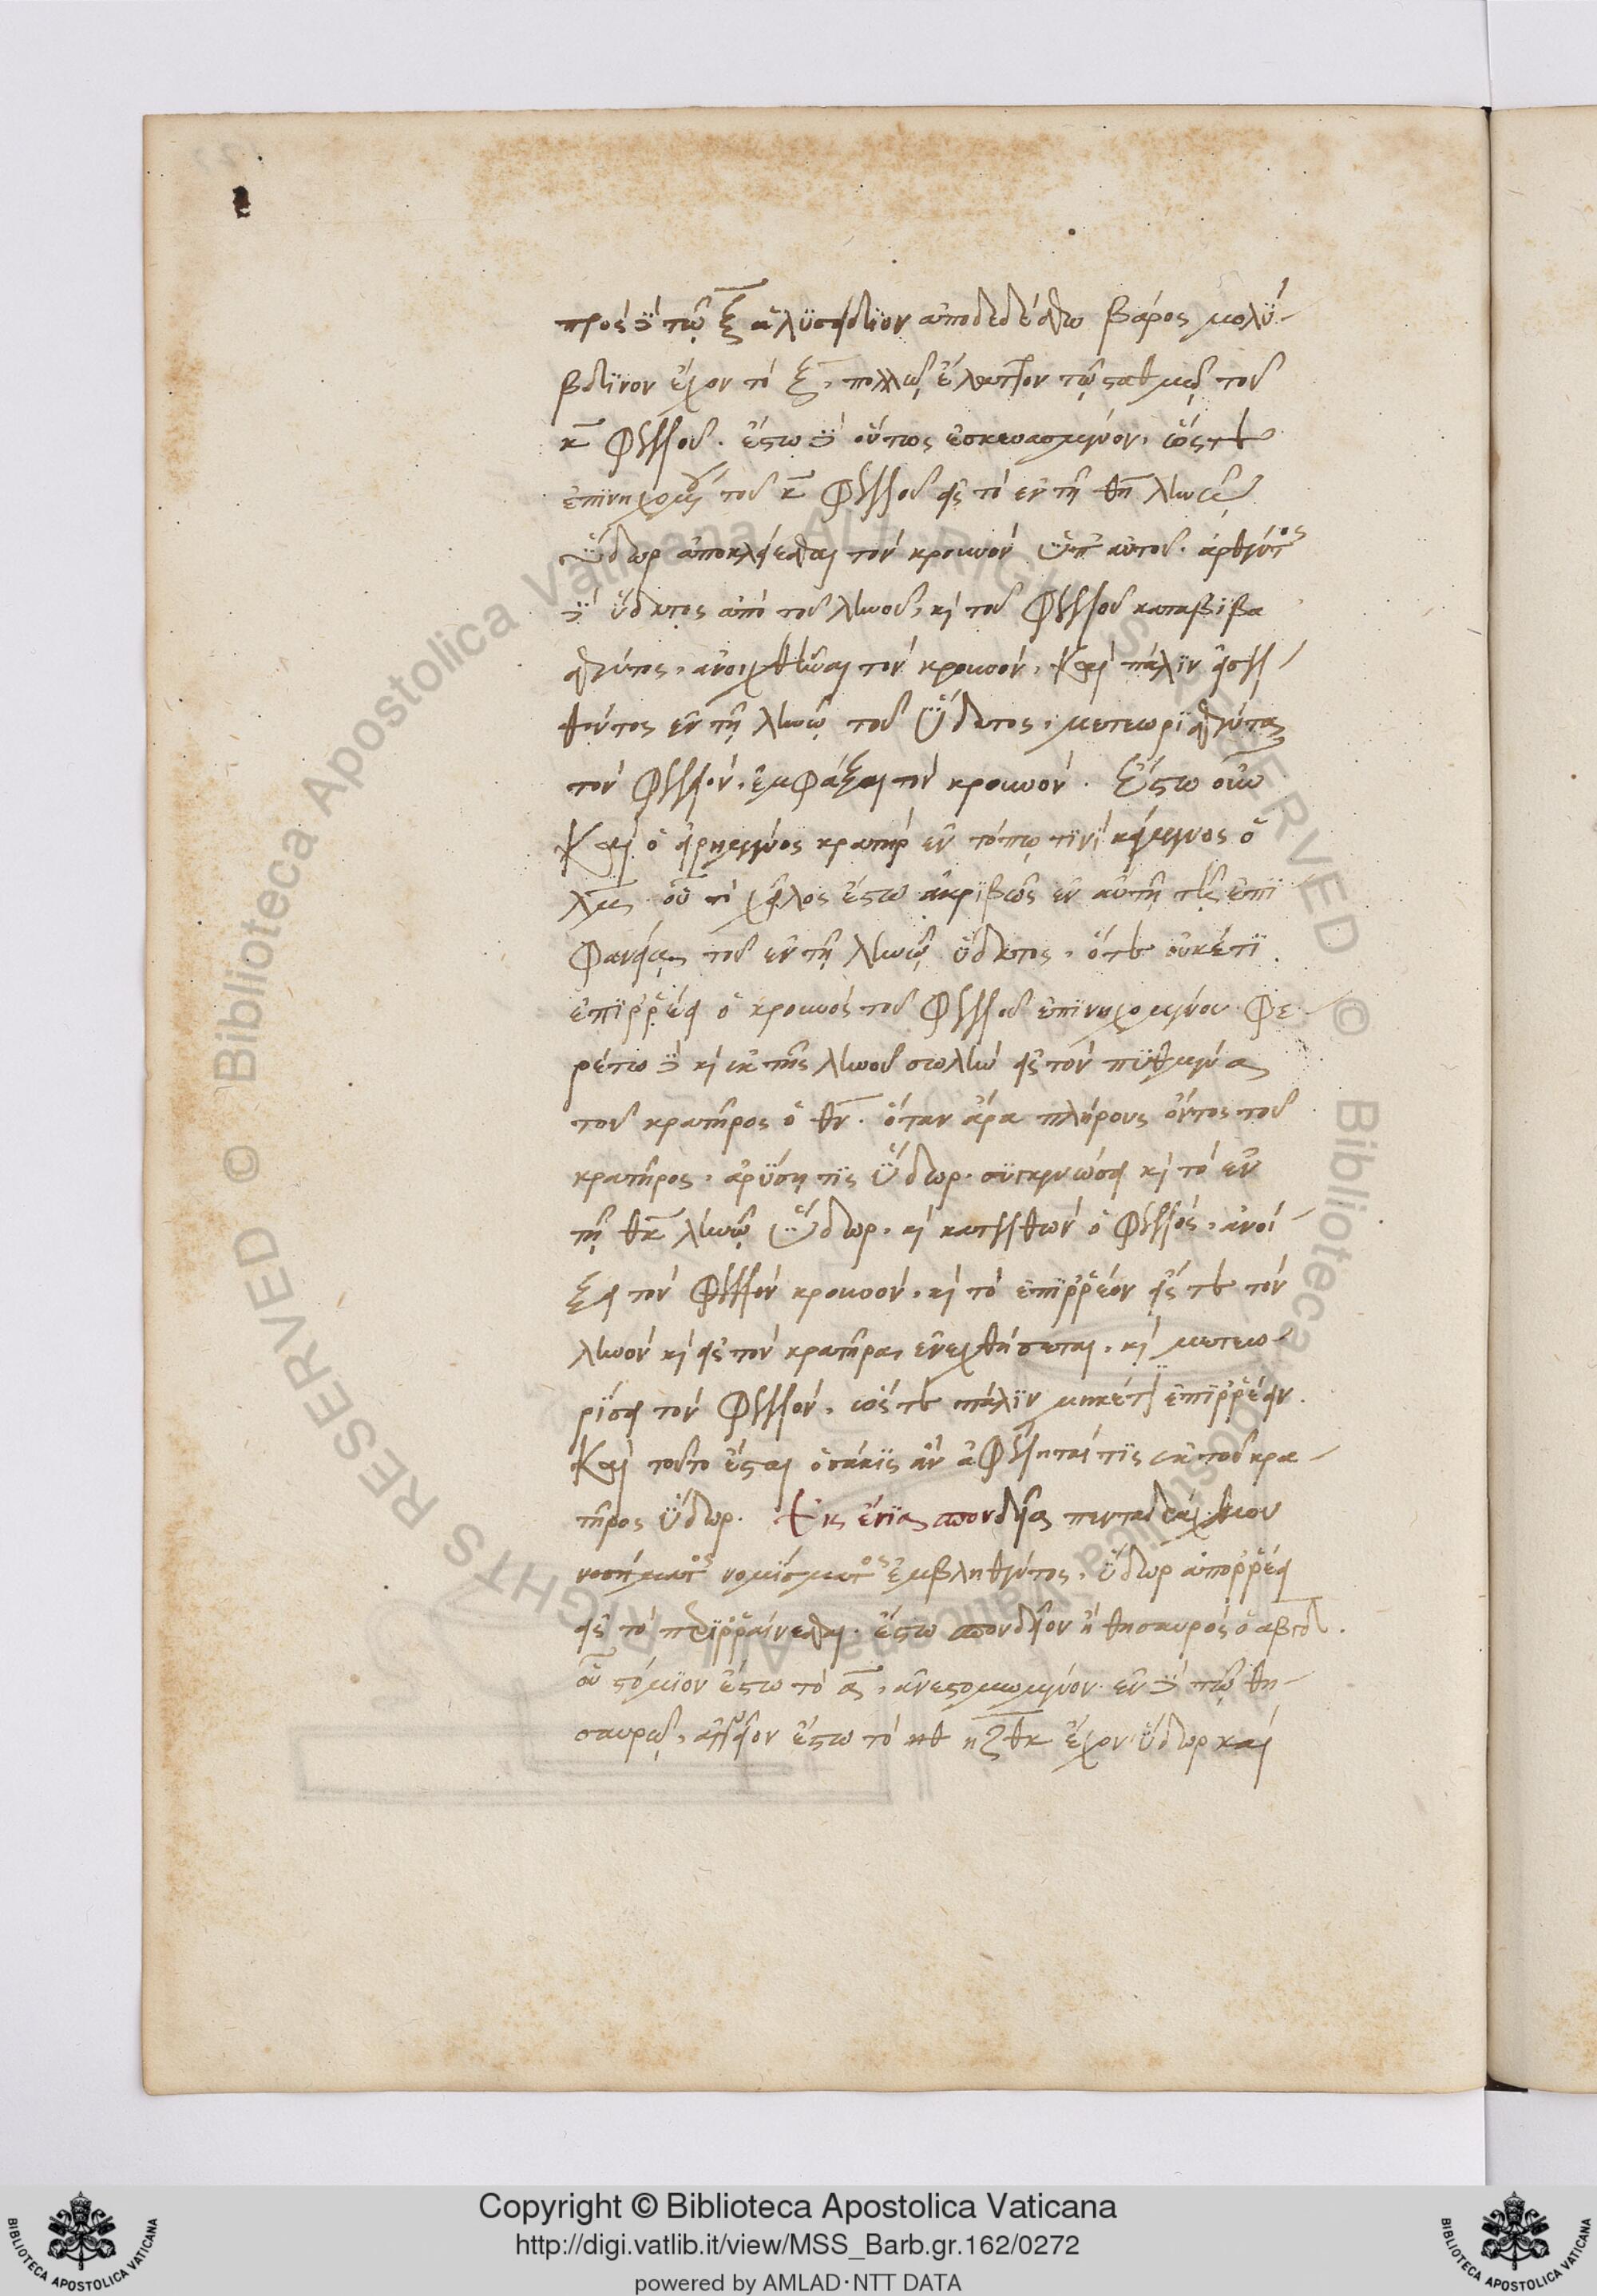 πρὸς δὲ τῷ ξ ἁλυσείδιον ἀποδεδέσθω βάρος μολύ-
βδινον ἔχον τὸ ξ, πολλῷ ἔλαττον τῷ σταθμῷ τοῦ
κ φελλοῦ. ἔστω δὲ οὕτως ἐσκευασμένον, ὥστε
ἐπινηχομένου τοῦ κ φελλοῦ εἰς τὸ ἐν τῇ θη ληνῷ
ὕδωρ ἀποκλείεσθαι τὸν κρουνὸν ὑπ' αὐτοῦ. ἀρθέντος
δὲ ὕδατος ἀπὸ τοῦ ληνοῦ, καὶ τοῦ φελλοῦ καταβιβα
σθέντος, ἀνοιχθῆναι τὸν κρουνόν, καὶ πάλιν εἰσελ-
θόντος ἐν τῇ ληνῷ τοῦ ὕδατος, μετεωρισθέντα
τὸν φελλόν, ἐμφάξαι τὸν κρουνόν. Ἔστω οὖν
καὶ ὁ εἰρημένος κρατὴρ ἐν τόπῳ τινὶ κείμενος ὁ
λμ οὗ τὸ χεῖλος ἔστω ἀκριβῶς ἐν αὐτῇ τῆς ἐπι
φανείας τοῦ ἐν τῇ ληνῷ ὕδατος, ὅτε οὐκέτι
ἐπιρρέει ὁ κρουνὸς τοῦ φελλοῦ ἐπινηχομένου φε-
ρέτω δὲ καὶ ἐκ τῆς ληνοῦ σωλὴν εἰς τὸν πυθμένα
τοῦ κρατῆρος ὁ θν. ὅταν ἄρα πλήρους ὄντος τοῦ
κρατῆρος, ἀρύσῃ τις ὕδωρ. συγκενώσει καὶ τὸ ἐν
τῇ θκ ληνῷ ὕδωρ, καὶ κατελθὼν ὁ φελλός, ἀνοί-
ξει τὸν φελλὸν κρουνόν, καὶ τὸ ἐπιρρέον εἴς τε τὸν
ληνὸν καὶ εἰς τὸν κρατῆρα, ἐνεχθήσεται, καὶ μετεω-
ρίσει τὸν φελλόν, ὥστε πάλιν μηκέτι ἐπιρρέειν.
καὶ τοῦτο ἔσται ὁσάκις ἂν ἀφέληταί τις ἐκ τοῦ κρα-
τῆρος ὕδωρ. Εἰς ἔνια σπονδεῖα πενταδράχμου
νοσήματος νομίσματος ἐμβληθέντος, ὕδωρ ἀπορρέει
εἰς τὸ περιρραίνεσθαι. ἔστω σπονδεῖον ἢ θησαυρὸς ὁ αβγδ.
οὗ στόμιον ἔστω τὸ α, ἀνεστομωμένον ἐν δὲ τῷ θη-
σαυρῷ, ἀγγεῖον ἔστω τὸ ηθ ηζθκ ἔχον ὕδωρ καὶ
Copyright © Biblioteca Apostolica Vaticana
http://digi.vatlib.it/view/MSS_Barb.gr.162/0272
powered by AMLAD·NTT DATA